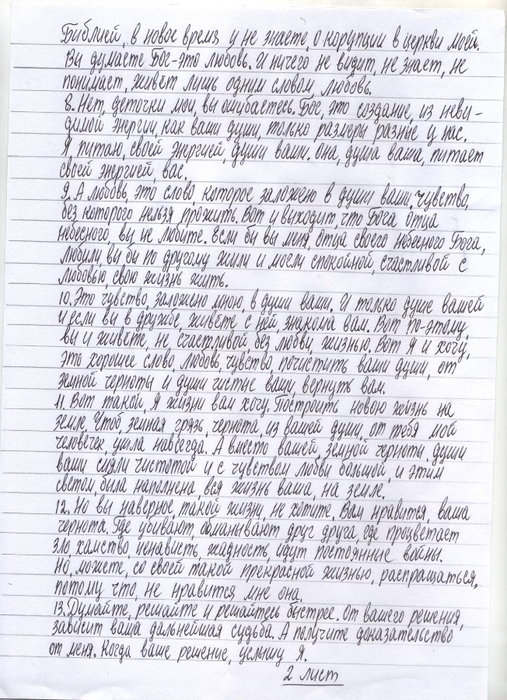 Библией, в новое время и не знаете, о корупции в церкви моей.
Вы думаете Бог-это любовь. И ничего не видит, не знает, не
понимает, живёт лишь одним словом, любовь.
8. Нет, деточки мои, вы ошибаетесь. Бог, это создание, из неви-
димой энергии, как ваши души, только размеры разные у нас.
Я питаю, своей энергией, души ваши. она, душа ваша, питает
своей энергией вас.
9. А любовь, это слово которое заложено в души ваши, чувство,
без которого нельзя прожить. Вот и выходит, что Бога отца
небесного, вы не любите. Если бы вы меня, отца своего небесного Бога,
любили, вы бы по другому жили и могли спокойной, счастливой с
любовью, свою жизнь жить.
10. Это чувство, заложено мною, в души ваши. И только душе вашей
и если вы в дружбе, живёте с ней, знакома вам. Вот по-этому,
вы и живёте, не счастливой, без любви жизнью. Вот Я и хочу,
это хорошее слово, любовь, чувство, почистить ваши души, от
земной черноты и души чистые ваши, вернуть вам.
11. Вот такой, Я жизни вам хочу. Построить новою жизнь на
земле. Чтоб, земная грязь, чернота, из вашей души, от тебя мой
человечек, ушла навсегда. А вместо вашей, земной черноты, души
ваши сияли чистотой и с чувством любви большой, и этим
светом, была наполнена, вся жизнь ваша, на земле.
12. Но вы наверное, такой жизни, не хотите. Вам нравится, ваша
чернота. Где убивают, обманывают друг друга, где процветает
зло, хамство, ненависть, жадность, идут постоянные войны.
Но, можете, со своей такой прекрасной жизнью, распращаться,
потому что, не нравится мне она.
13. Думайте, решайте и решайтесь быстрее. От вашего решения,
зависит ваша дальнейшая судьба. А получите доказательство
от меня. Когда ваше решение, услышу Я.
2 лист